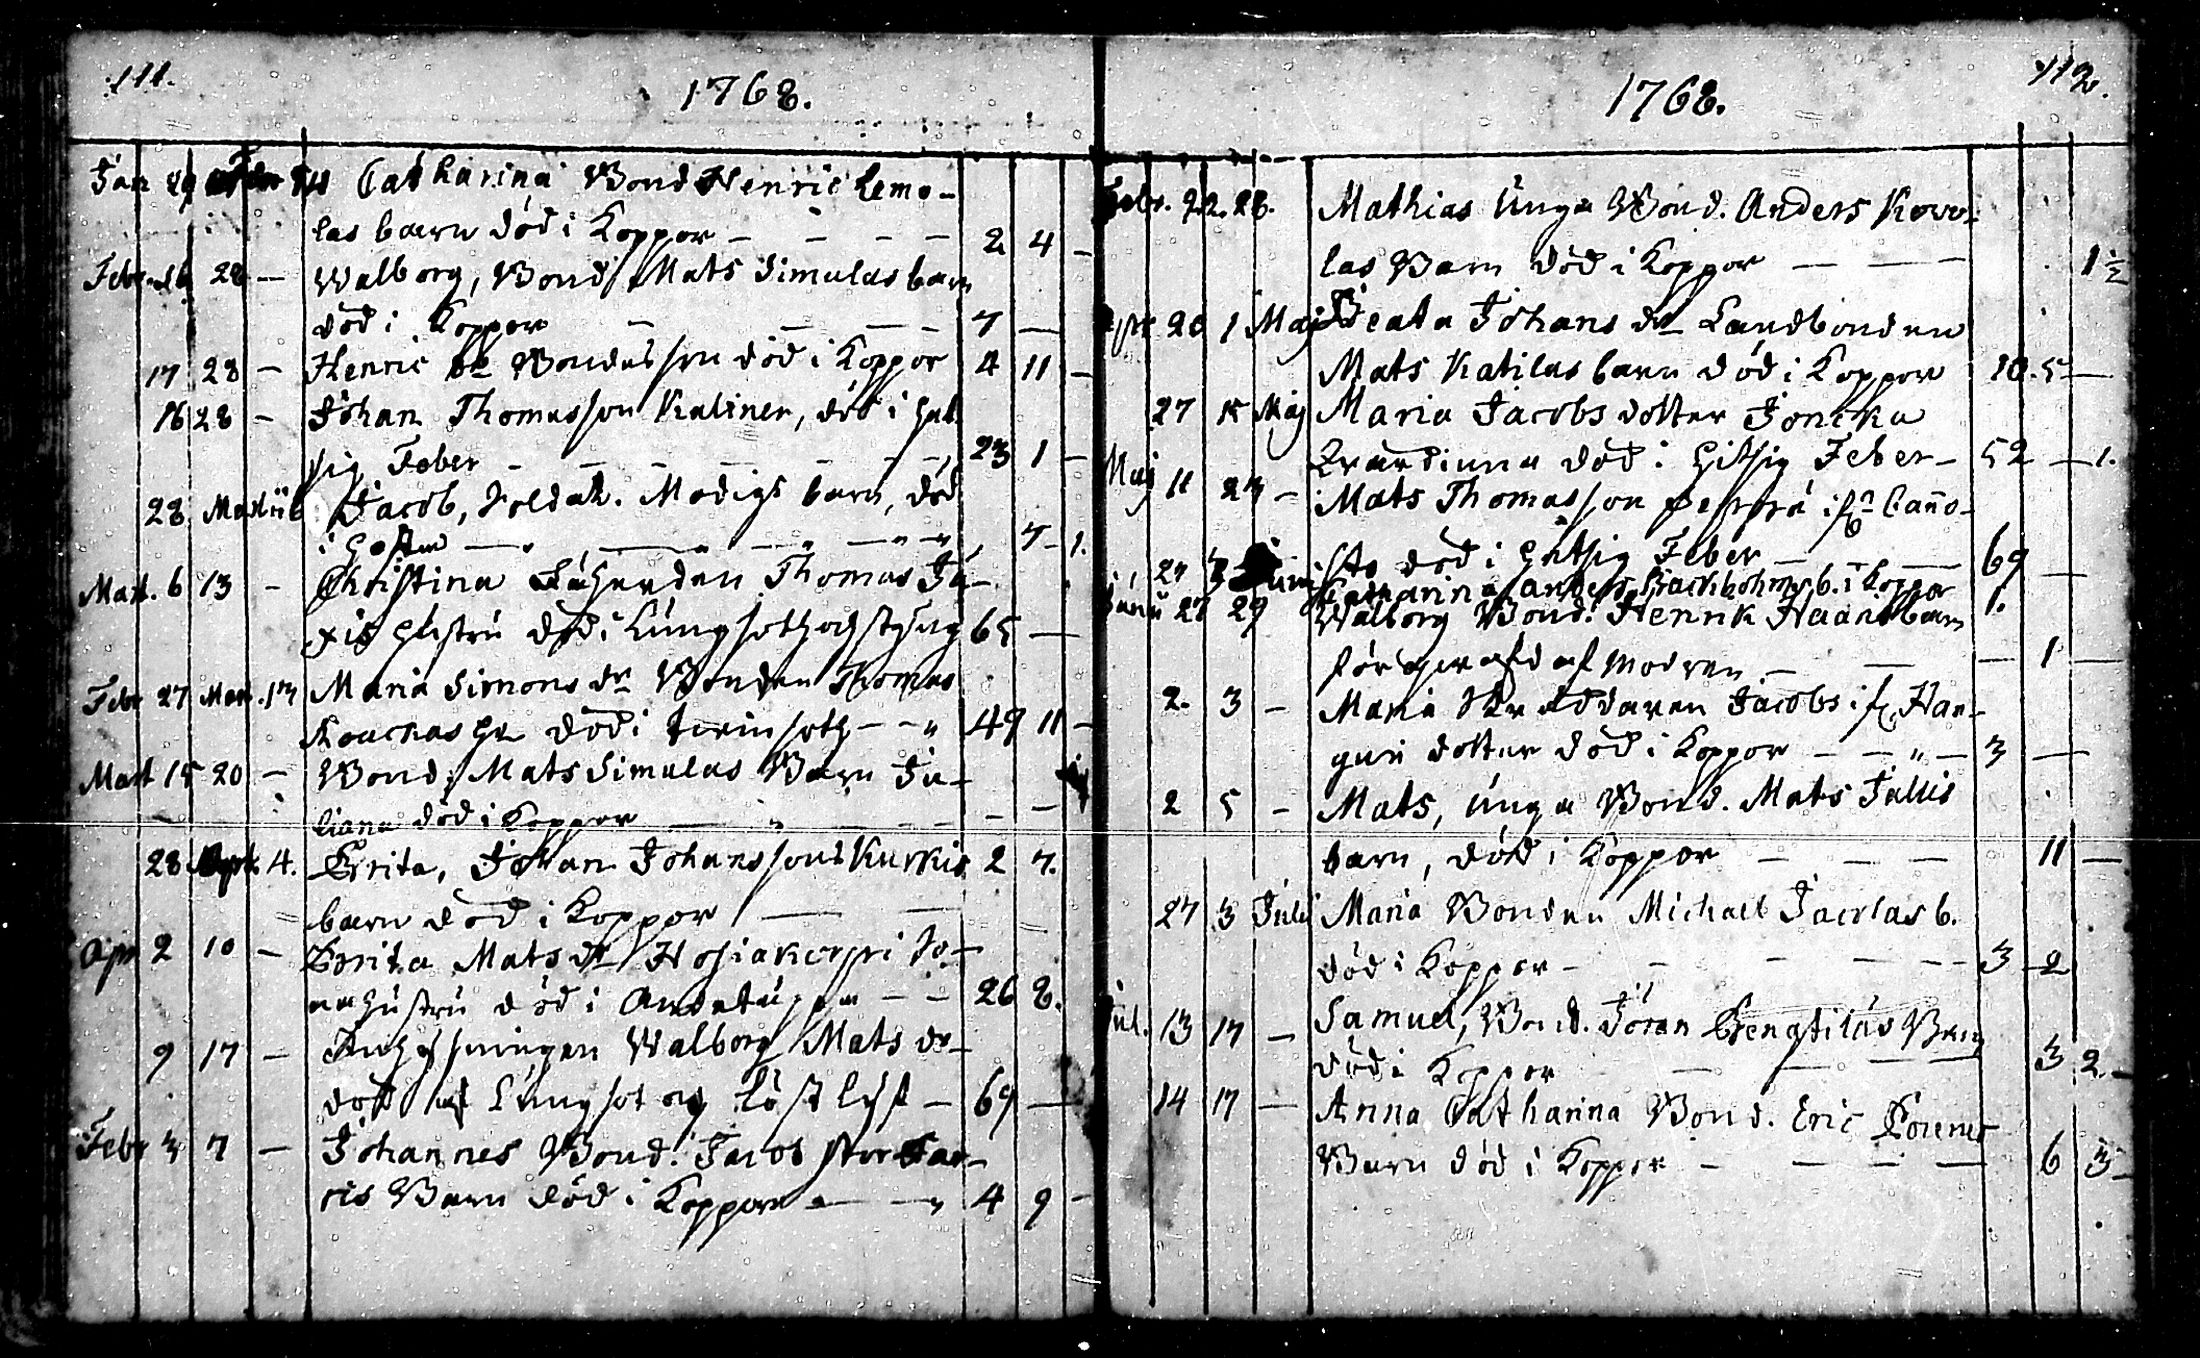 111.
1768.
Jan 29 Febr 14 Catharina Bond Henric Lemo-
las barn död i Koppor - - - - 2 4 -
Febr. 16 28 - Walborg, Bond. Mats Simulas barn
död i Koppor - - - - 7 -
17 28 - Henric Bondesson död i Koppor 4 11 -
16 28 - Johan Thomasson Kaliner, död i het
sig Feber - - - - - - 23 1 -
28 Martii 6 Jacob, Soldat. Modigs barn, död
i Hosta - - - - 7 1.
Mart. 6 13 - Christina Thomas Jä-
xis Hustru död i Lungsot och styng 65 -
Febr 27 Mart. 13 Maria Simons dr Bonden Thomas
Kouckas Hu död i twinsoth - - " 49 11 -
Mart 15 20 - Bond. Mats Simulas Barn Ju-
liana död i Koppor - " - - - -
28 Apr. 4. Brita, Johan Johanssons Kurkis 2 7.
barn död i Koppor - -
Apr 2 10 - Brita Mats dr Hosiakoppi So-
nahustru död i Andetäppa - - 26 8.
9 17 - Inhysningen Walborg Mats dr
död af Lungsot och Löst lif - 69 -
Febr 3 7 - Johannes Bond. Jacob stor Jac-
cis Barn död i Koppor - - " 4 9 -
112.
1768.
Febr. 22. 28. Mathias Unga Bond. Anders Kovo-
las Barn död i Koppor - - - 1 1/2
Apr 20 1 Maj Beata Johans dr Landbonden
Mats Katilas barn död i Koppor 10. 5 -
27 15 Maj Maria Jacobs dotter Joncka
död i Hitsig Feber - 52 - 1.
Maj 11 23 - Mats Thomasson i fr Canno-
sto död i Hetsig Feber - - - 69 -
24 3 Juni Catharina anders Backbohms b. i Koppor
Juni 27 29 Walborg Bond. Henrik Haans barn 1.
af Modren - - - 1 -
2. 3 - Maria Skreddaren Jacobs i fr. Han-
gun dotter död i Koppor - - " - 3 -
2 5 - Mats, Unga Bond. Mats Jallis
barn, död i Koppor - - - 11 -
27 3 Julii Maria Bonden Michael Jaerlas b.
död i Koppor - - - - - 3 2
Jul. 13 17 - Samuel, Bond. Jöran Bengtilas Barn
död i Koppor - - - 3 2 -
14 17 - Anna Catharina Bond. Eric
Barn död i Koppor - - - - 6 3 -